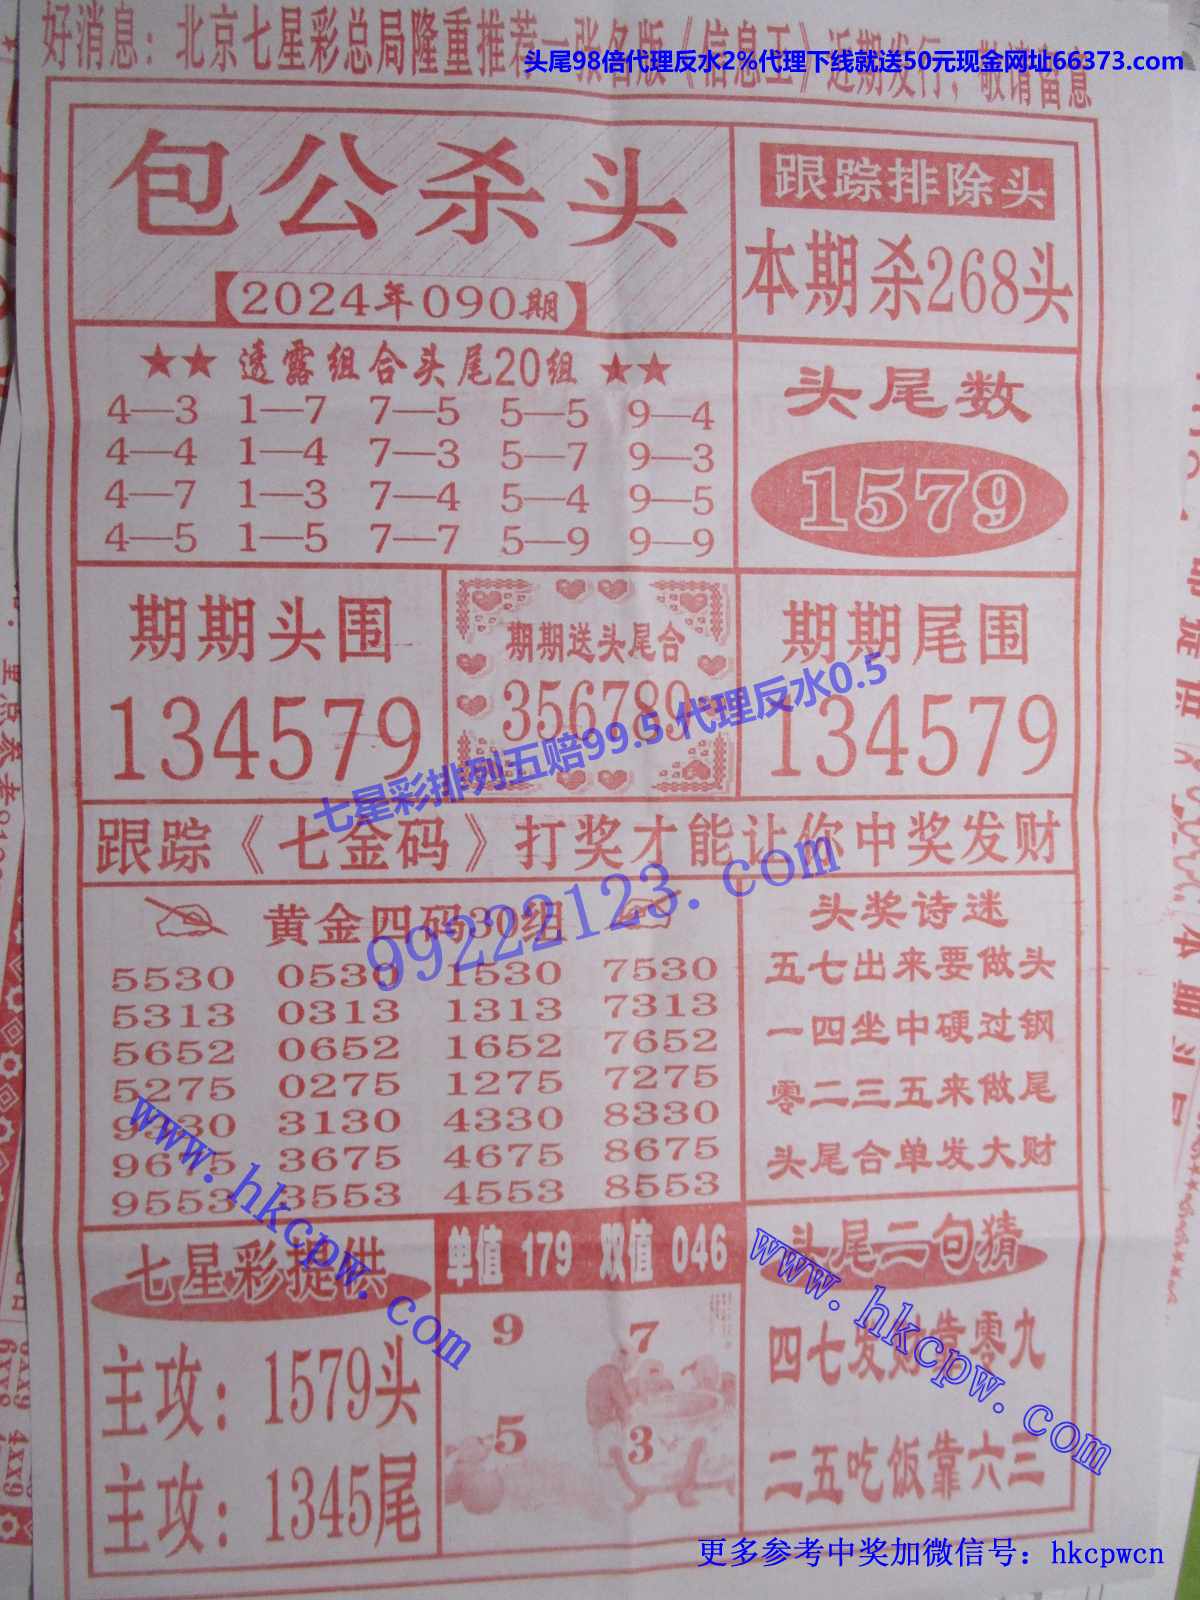 好消息：北京七星彩总局隆重推荐一张名版《信息王》近期发行，敬请留意
头尾98倍代理反水2%代理下线就送50元现金网址66373.com
包公杀头
【2024年090期】
跟踪排除头
本期杀268头
★★ 透露组合头尾20组 ★★
4—3 1—7 7—5 5—5 9—4
4—4 1—4 7—3 5—7 9—3
4—7 1—3 7—4 5—4 9—5
4—5 1—5 7—7 5—9 9—9
头尾数
1579
期期头围
134579
期期送头尾合
356789
期期尾围
134579
七星彩排列五赔99.5 代理反水0.5
跟踪《七金码》打奖才能让你中奖发财
99222123.com
黄金四码30组
5530 0530 1530 7530
5313 0313 1313 7313
5652 0652 1652 7652
5275 0275 1275 7275
9330 3130 4330 8330
9675 3675 4675 8675
9553 3553 4553 8553
头奖诗迷
五七出来要做头
一四坐中硬过钢
零二三五来做尾
头尾合单发大财
www.hkcpw.com
七星彩提供
主攻：1579头
主攻：1345尾
单值 179 双值 046
9 7
5 3
头尾二句猜
四七发财靠零九
二五吃饭靠六三
www.hkcpw.com
更多参考中奖加微信号：hkcpwcn